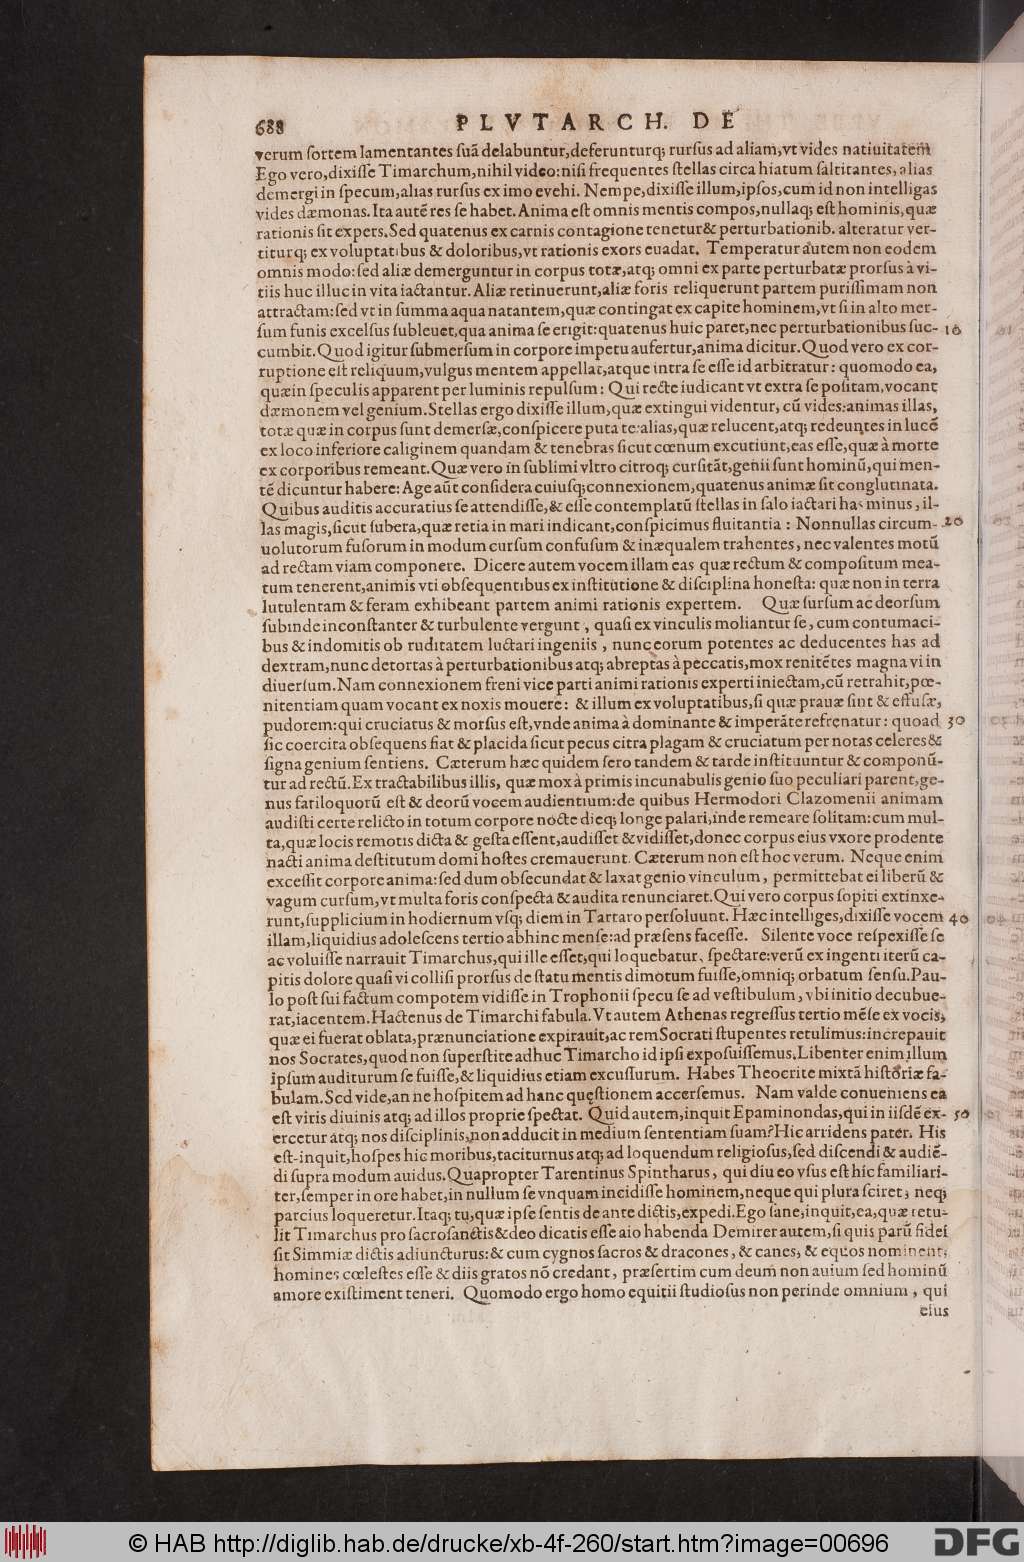 688 PLVTARCH. DE
verum sortem lamentantes suã delabuntur, deferunturq; rursus ad aliam, vt vides natiuitatem
Ego vero, dixisse Timarchum, nihil video: nisi frequentes stellas circa hiatum saltitantes, alias
demergi in specum, alias rursus ex imo evehi. Nempe, dixisse illum, ipsos, cum id non intelligas
vides dæmonas. Ita autẽ res se habet. Anima est omnis mentis compos, nullaq; est hominis, quæ
rationis sit expers. Sed quatenus ex carnis contagione tenetur & perturbationib. alteratur ver-
titurq; ex voluptatibus & doloribus, vt rationis exors euadat. Temperatur autem non eodem
omnis modo: sed aliæ demerguntur in corpus totæ, atq; omni ex parte perturbatæ prorsus à vi-
tiis huc illuc in vita iactantur. Aliæ retinuerunt, aliæ foris reliquerunt partem purissimam non
attractam: sed vt in summa aqua natantem, quæ contingat ex capite hominem, vt si in alto mer-
sum funis excelsus subleuet, qua anima se erigit: quatenus huic paret, nec perturbationibus suc- 10
cumbit. Quod igitur submersum in corpore impetu aufertur, anima dicitur. Quod vero ex cor-
ruptione est reliquum, vulgus mentem appellat, atque intra se esse id arbitratur: quomodo ea,
quæ in speculis apparent per luminis repulsum: Qui recte iudicant vt extra se positam, vocant
dæmonem vel genium. Stellas ergo dixisse illum, quæ extingui videntur, cũ vides: animas illas,
totæ quæ in corpus sunt demersæ, conspicere puta te: alias, quæ relucent, atq; redeuntes in lucẽ
ex loco inferiore caliginem quandam & tenebras sicut cœnum excutiunt, eas esse, quæ à morte
ex corporibus remeant. Quæ vero in sublimi vltro citroq; cursitãt, genii sunt hominũ, qui men-
tẽ dicuntur habere: Age aũt considera cuiusq; connexionem, quatenus animæ sit conglutinata.
Quibus auditis accuratius se attendisse, & esse contemplatũ stellas in salo iactari has minus, il-
las magis, sicut subera, quæ retia in mari indicant, conspicimus fluitantia: Nonnullas circum- 20
uolutorum fusorum in modum cursum confusum & inæqualem trahentes, nec valentes motũ
ad rectam viam componere. Dicere autem vocem illam eas quæ rectum & compositum mea-
tum tenerent, animis vti obsequentibus ex institutione & disciplina honesta: quæ non in terra
lutulentam & feram exhibeant partem animi rationis expertem. Quæ sursum ac deorsum
subinde inconstanter & turbulente vergunt, quasi ex vinculis moliantur se, cum contumaci-
bus & indomitis ob ruditatem luctari ingeniis, nunc eorum potentes ac deducentes has ad
dextram, nunc detortas à perturbationibus atq; abreptas à peccatis, mox renitẽtes magna vi in
diuersum. Nam connexionem freni vice parti animi rationis experti iniectam, cũ retrahit, pœ-
nitentiam quam vocant ex noxis mouere: & illum ex voluptatibus, si quæ prauæ sint & effusæ,
pudorem: qui cruciatus & morsus est, vnde anima à dominante & imperãte refrenatur: quoad 30
sic coercita obsequens fiat & placida sicut pecus citra plagam & cruciatum per notas celeres &
signa genium sentiens. Cæterum hæc quidem sero tandem & tarde instituuntur & componũ-
tur ad rectũ. Ex tractabilibus illis, quæ mox à primis incunabulis genio suo peculiari parent, ge-
nus fatiloquorũ est & deorũ vocem audientium: de quibus Hermodori Clazomenii animam
audisti certe relicto in totum corpore nocte dieq; longe palari, inde remeare solitam: cum mul-
ta, quæ locis remotis dicta & gesta essent, audisset & vidisset, donec corpus eius vxore prodente
nacti anima destitutum domi hostes cremauerunt. Cæterum non est hoc verum. Neque enim
excessit corpore anima: sed dum obsecundat & laxat genio vinculum, permittebat ei liberũ &
vagum cursum, vt multa foris conspecta & audita renunciaret. Qui vero corpus sopiti extinxe-
runt, supplicium in hodiernum vsq; diem in Tartaro persoluunt. Hæc intelliges, dixisse vocem 40
illam, liquidius adolescens tertio abhinc mense: ad præsens facesse. Silente voce respexisse se
ac voluisse narrauit Timarchus, qui ille esset, qui loquebatur, spectare: verũ ex ingenti iterũ ca-
pitis dolore quasi vi collisi prorsus de statu mentis dimotum fuisse, omniq; orbatum sensu. Pau-
lo post sui factum compotem vidisse in Trophonii specu se ad vestibulum, vbi initio decubue-
rat, iacentem. Hactenus de Timarchi fabula. Vt autem Athenas regressus tertio mẽse ex vocis,
quæ ei fuerat oblata, prænunciatione expirauit, ac rem Socrati stupentes retulimus: increpauit
nos Socrates, quod non superstite adhuc Timarcho id ipsi exposuissemus. Libenter enim illum
ipsum auditurum se fuisse, & liquidius etiam excussurum. Habes Theocrite mixtã historiæ fa-
bulam. Sed vide, an ne hospitem ad hanc quęstionem accersemus. Nam valde conueniens ea
est viris diuinis atq; ad illos proprie spectat. Quid autem, inquit Epaminondas, qui in iisdẽ ex- 50
ercetur atq; nos disciplinis, non adducit in medium sententiam suam? Hic arridens pater. His
est, inquit, hospes hic moribus, taciturnus atq; ad loquendum religiosus, sed discendi & audiẽ-
di supra modum auidus. Quapropter Tarentinus Spintharus, qui diu eo vsus est hic familiari-
ter, semper in ore habet, in nullum se vnquam incidisse hominem, neque qui plura sciret, neq;
parcius loqueretur. Itaq; tu, quæ ipse sentis de ante dictis, expedi. Ego sane, inquit, ea, quæ retu-
lit Timarchus pro sacrosanctis & deo dicatis esse aio habenda Demirer autem, si quis parũ fidei
sit Simmiæ dictis adiuncturus: & cum cygnos sacros & dracones, & canes, & equos nominent,
homines cœlestes esse & diis gratos nõ credant, præsertim cum deum non auium sed hominũ
amore existiment teneri. Quomodo ergo homo equitii studiosus non perinde omnium, qui
eius
© HAB http://diglib.hab.de/drucke/xb-4f-260/start.htm?image=00696
DFG